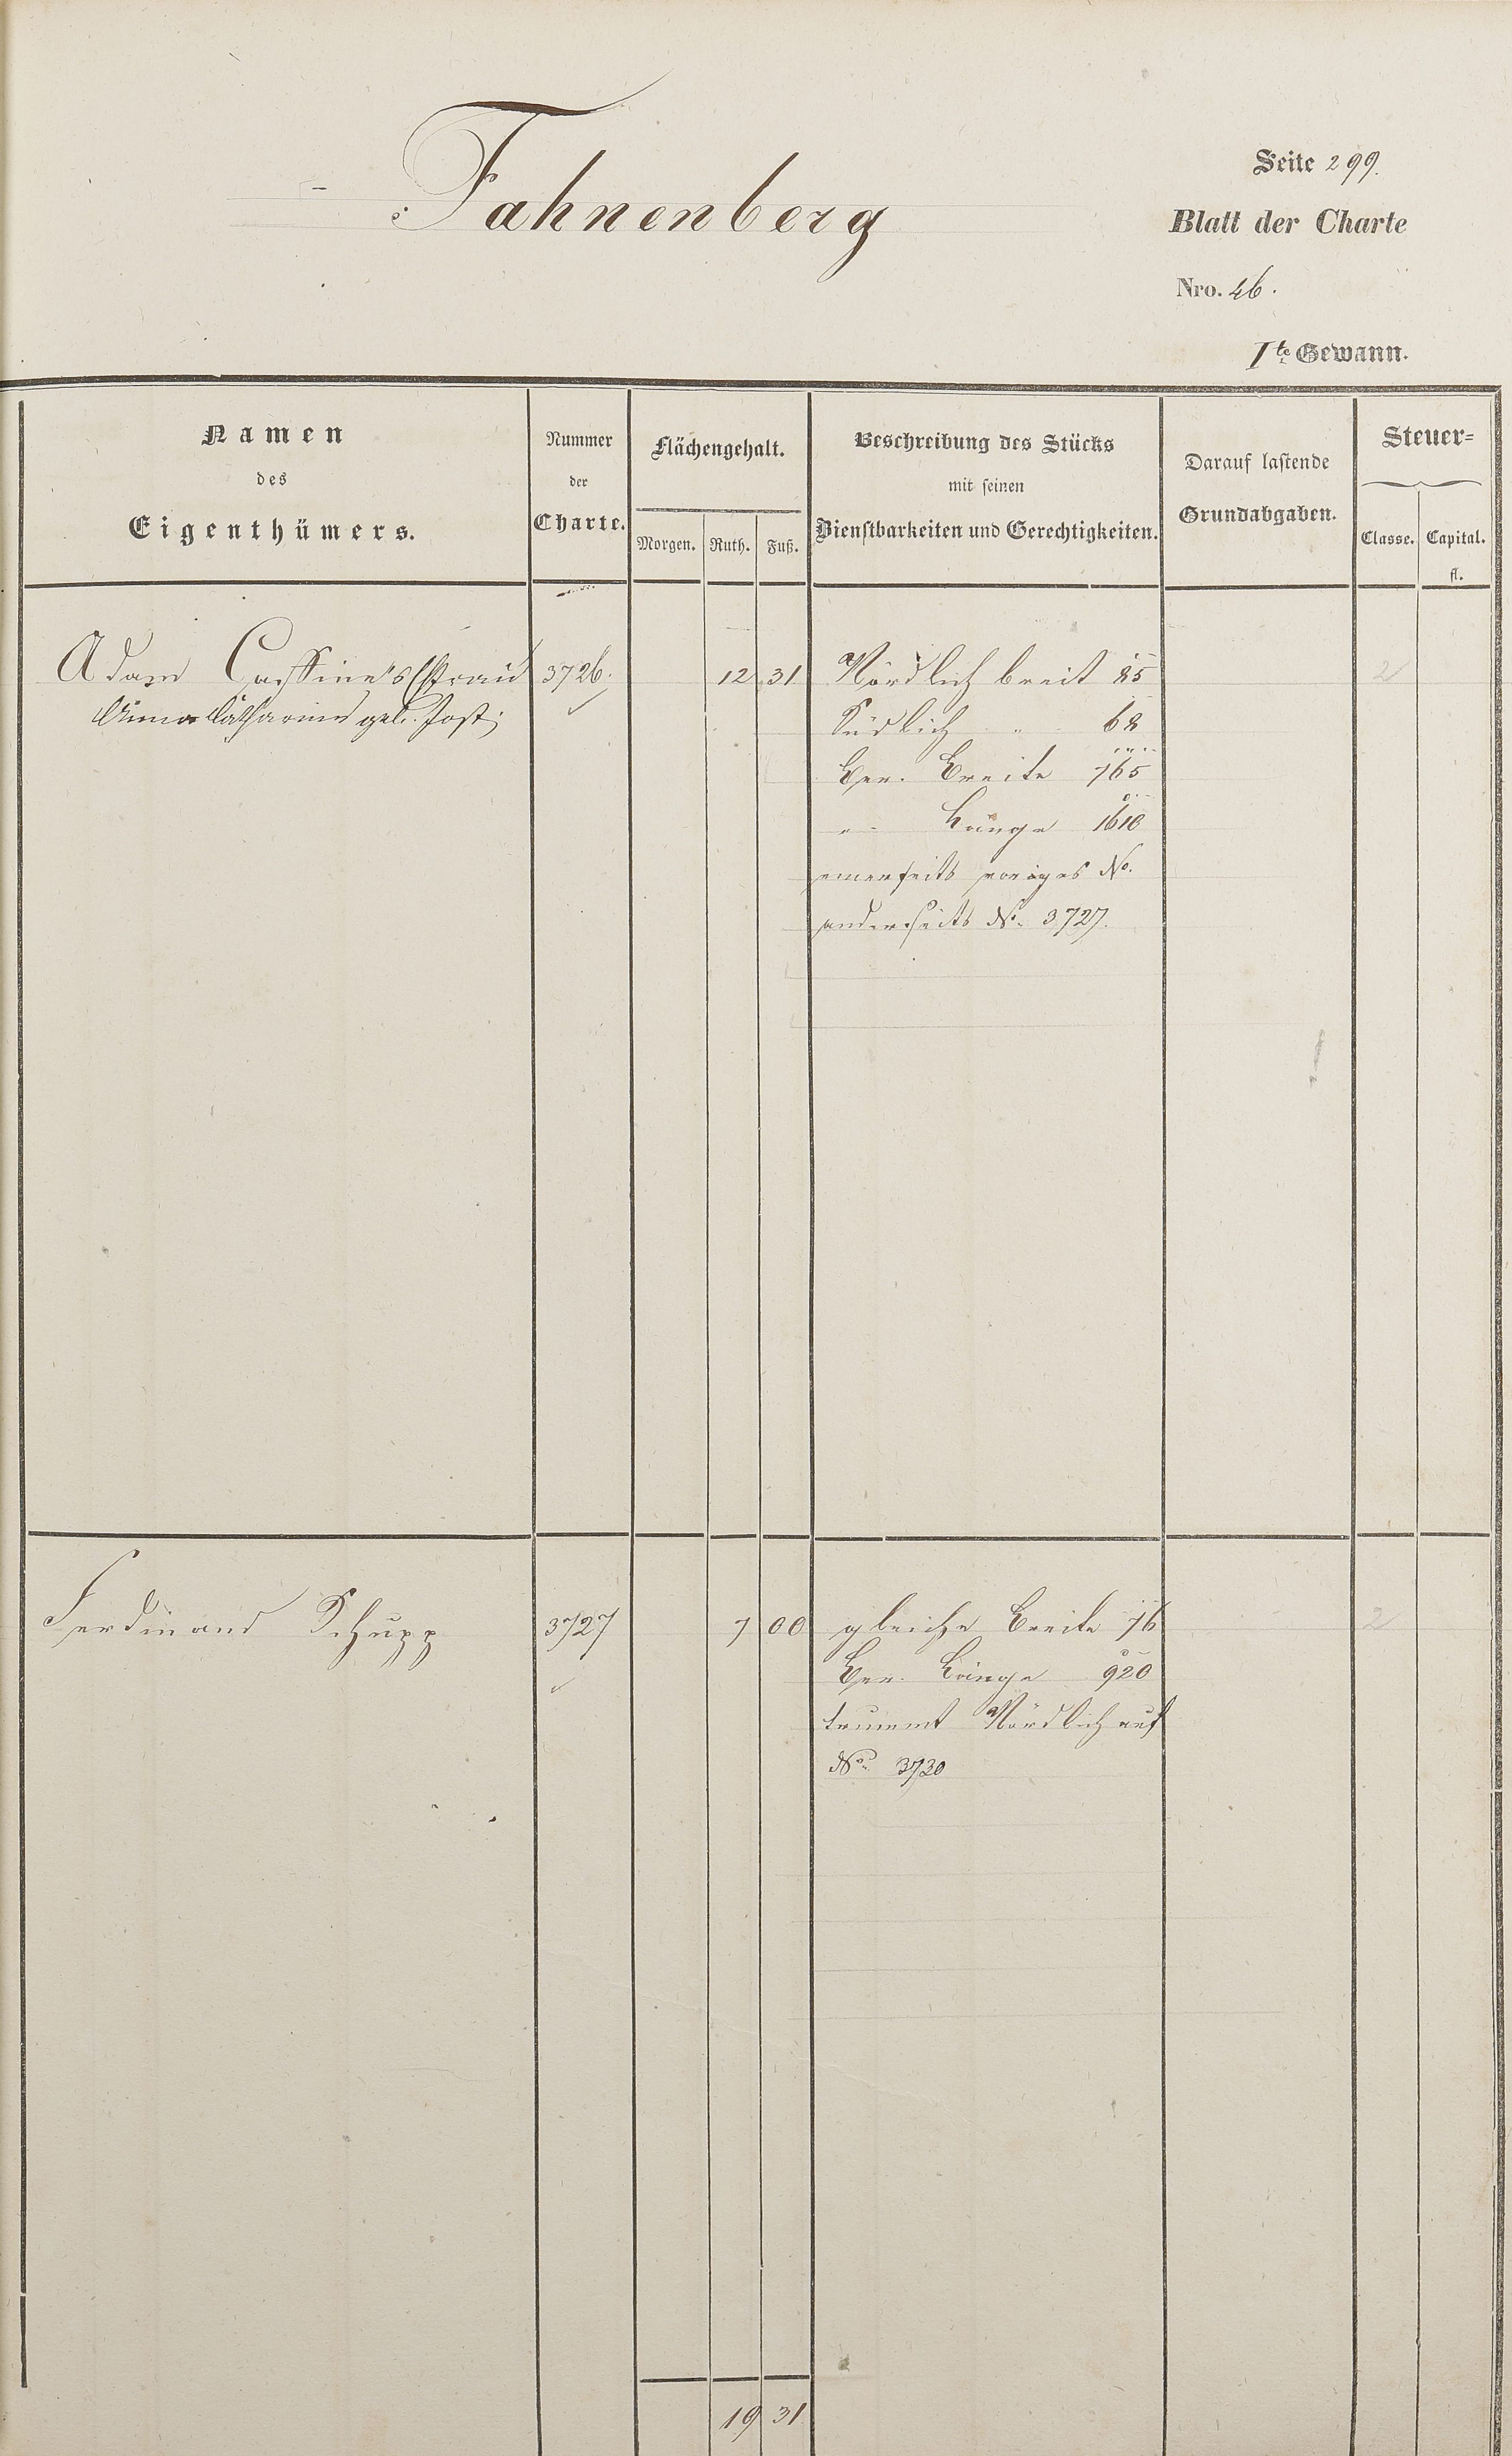 Fahnenberg
Seite 299.
Blatt der Charte
Nro. 46.
1te Gewann.
Namen
des
Eigenthümers.
Nummer
der
Charte.
Flächengehalt.
Morgen. Ruth. Fuß.
Beschreibung des Stücks
mit seinen
Dienstbarkeiten und Gerechtigkeiten.
Darauf lastende
Grundabgaben.
Steuer=
Classe. Capital.
fl.
Adam Cassine's Ehfrau 3726. 12 31 Nördlich breit 85 2
Anna Catharina geb. Jost; Südlich " 68
Ber. Breite 765
" Länge 1610
einerseits voriges No.
anderseits No. 3727.
Ferdinand Schupp 3727 7 00 gleiche Breite 76 2
Ber. Länge 920
Nördlich auf
No. 3730
19 31